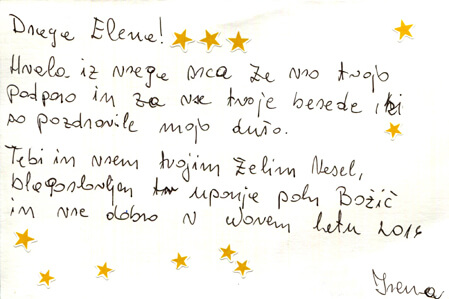 Draga Elena!
Hvala iz vsega srca za vso tvojo
podporo in za vse tvoje besede, ki
so pozdravile mojo dušo.
Tebi in vsem tvojim želim vesel,
blagoslovljen upanja poln Božič
in vse dobro v novem letu 2014
Irena